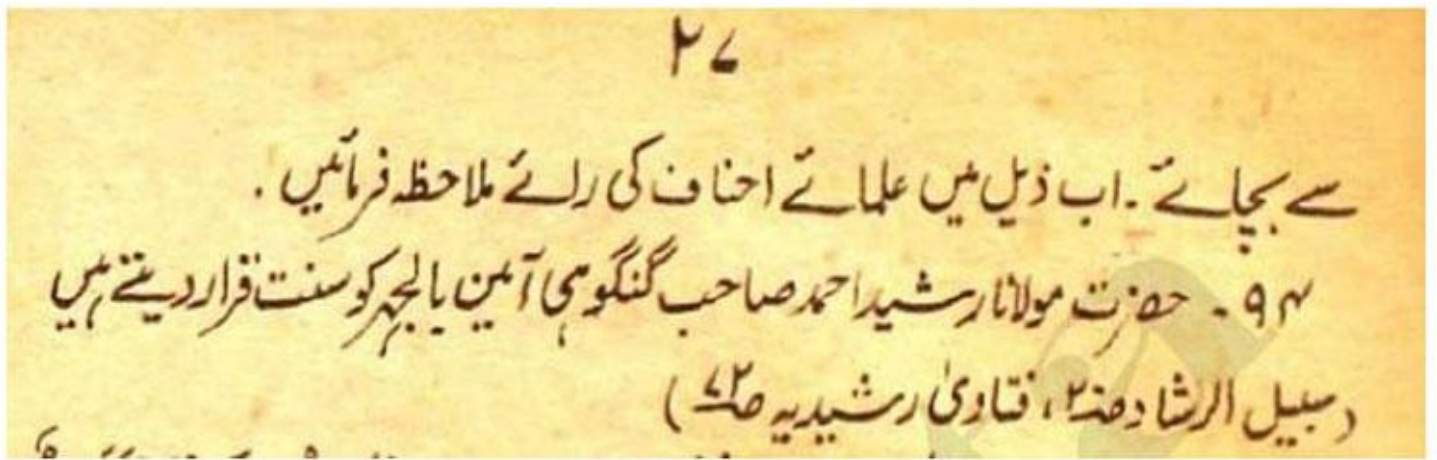 ۲۷
سے بچائے ۔ اب ذیل میں علمائے احناف کی رائے ملاحظہ فرمائیں .
۹۴ ۔ حضرت مولانا رشید احمد صاحب گنگوہی آمین بالجہر کو سنت قرار دیتے ہیں
(سبیل الرشاد ، فتاویٰ رشیدیہ )